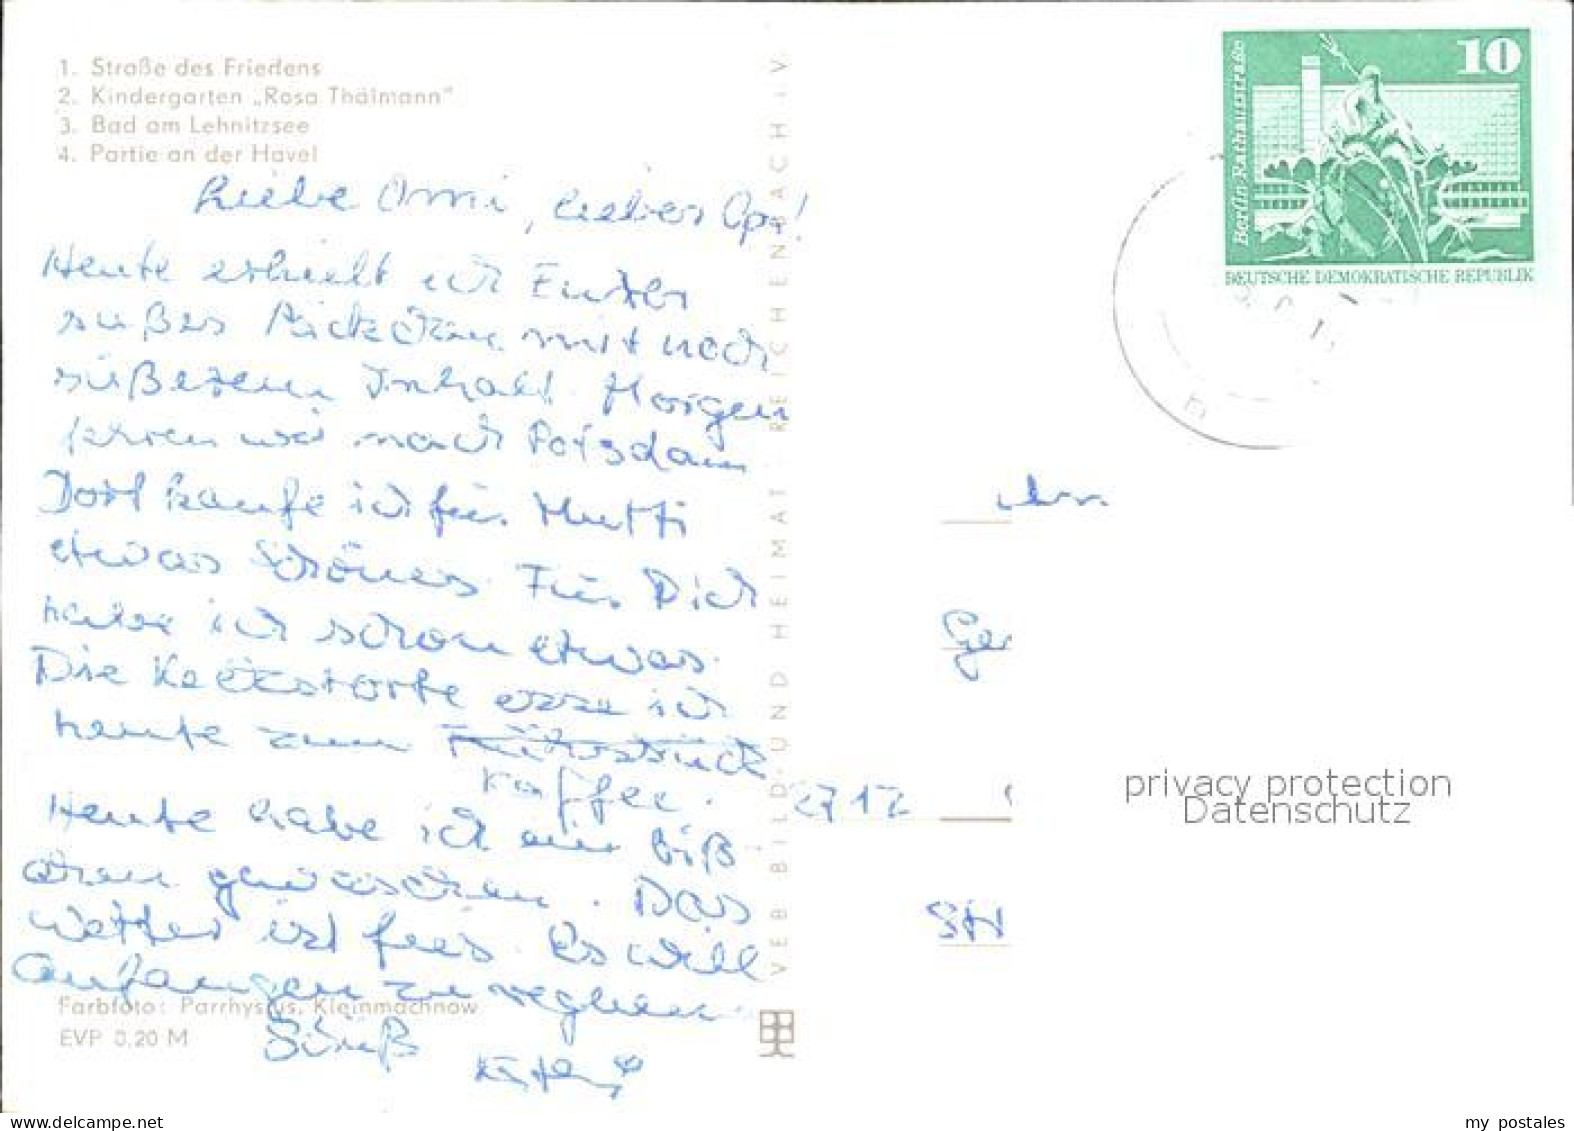 1. Straße des Friedens
2. Kindergarten „Rosa Thälmann"
3. Bad am Lehnitzsee
4. Partie an der Havel
Liebe Omi, lieber Opa!
Heute erhielt ich Euer
süßes Päckchen mit noch
süßerem Inhalt. Morgen
fahren wir nach Potsdam
Dort kaufe ich für Mutti
etwas Schönes. Für Dich
habe ich schon etwas.
Die Kekstorte esse ich
heute zum Frühstück
Kaffee.
Heute habe ich ein biß
chen gewaschen. Das
Wetter ist fies. Es will
anfangen zu regnen
Farbfoto: Parrhysius, Kleinmachnow
EVP 0,20 M
VEB BILD UND HEIMAT REICHENBACH i. V.
10
Berlin-Rathausstraße
DEUTSCHE DEMOKRATISCHE REPUBLIK
Ger
2712
privacy protection
Datenschutz
my postales